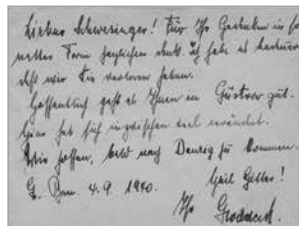 Lieber Schwesinger! Für Ihr Gedenken in so
netter Form herzlichen Dank. Ich habe es bedauert
daß wir Sie verloren haben.
Hoffentlich geht es Ihnen in Güstrow gut.
Hier hat sich inzwischen viel verändert.
Wir hoffen, bald nach Danzig zu kommen.
G. Bom. 4.9.1940. Heil Hitler!
Ihr